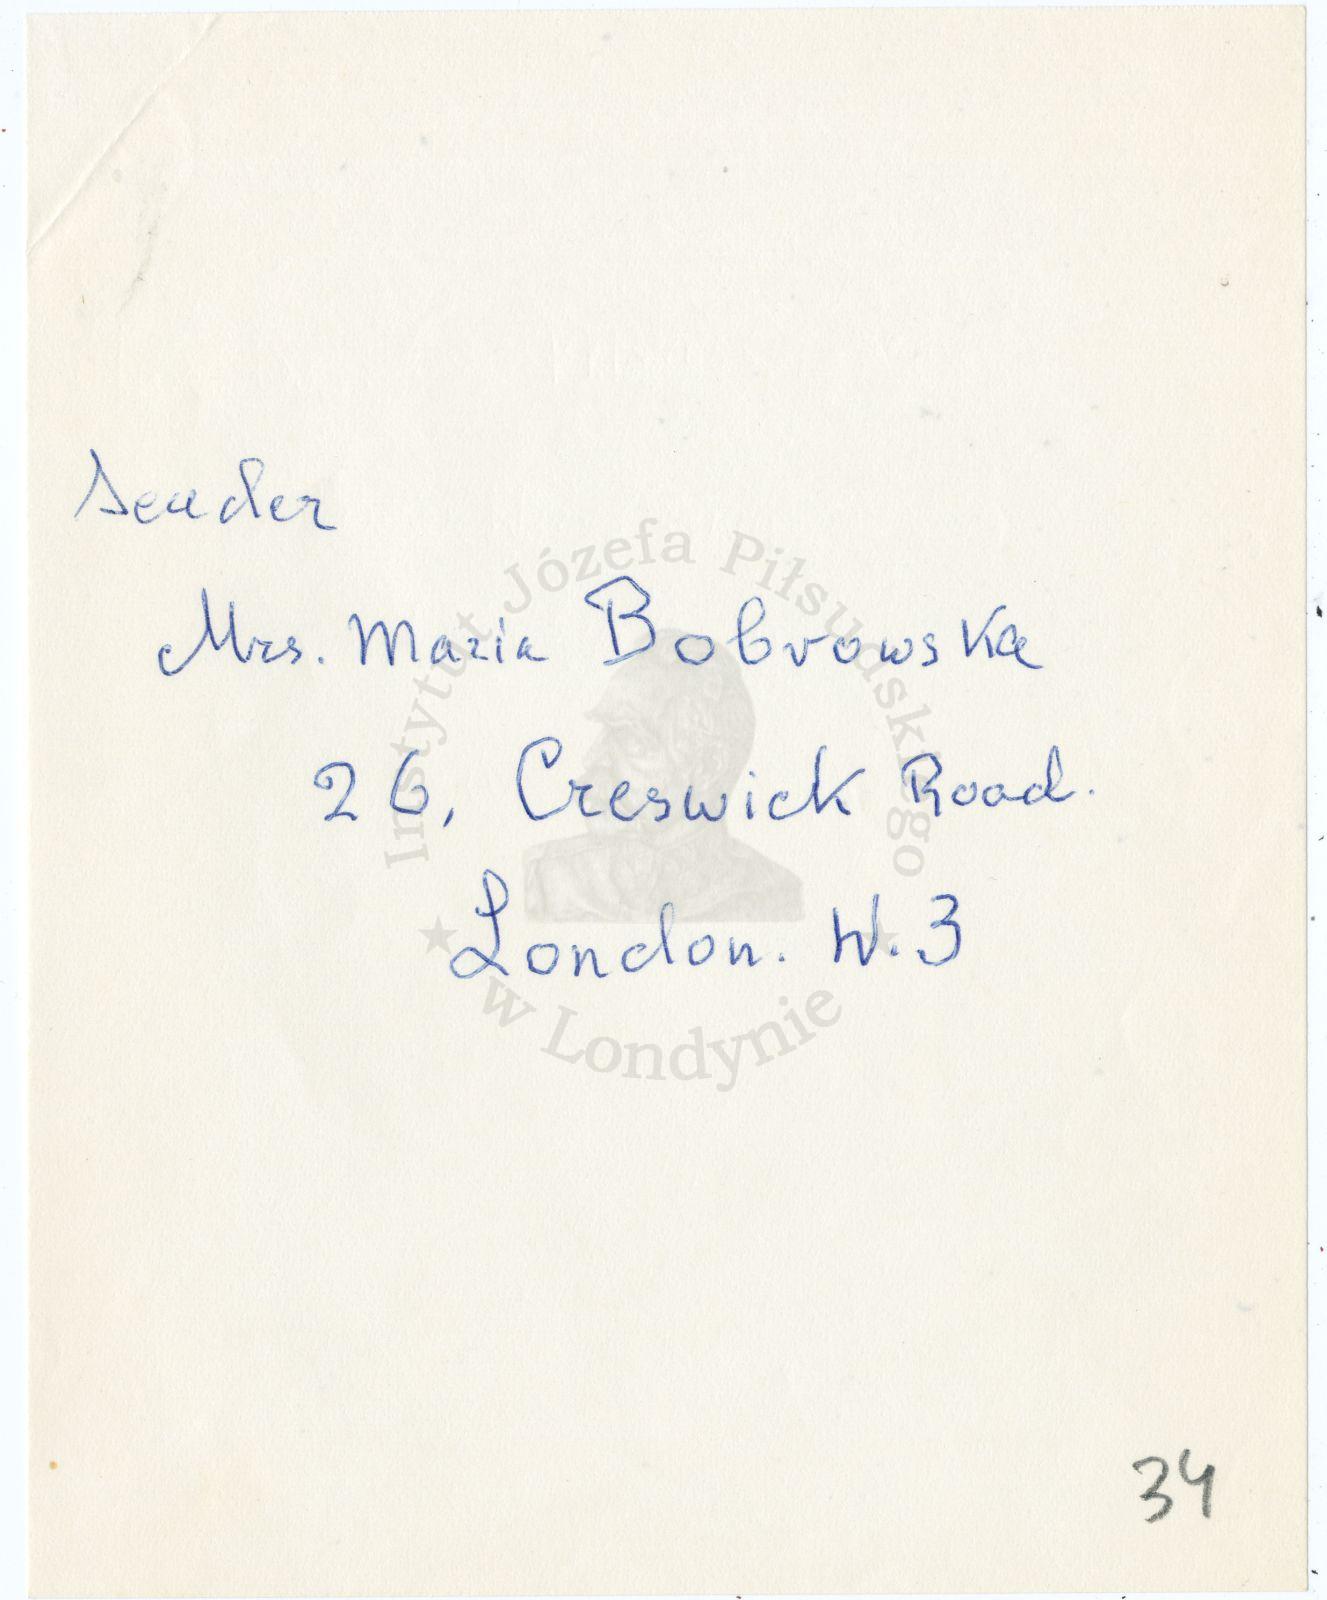 Sender
Mrs. Maria Bobrowska
26, Creswick Road.
London. W.3
Instytut Józefa Piłsudskiego
w Londynie
34